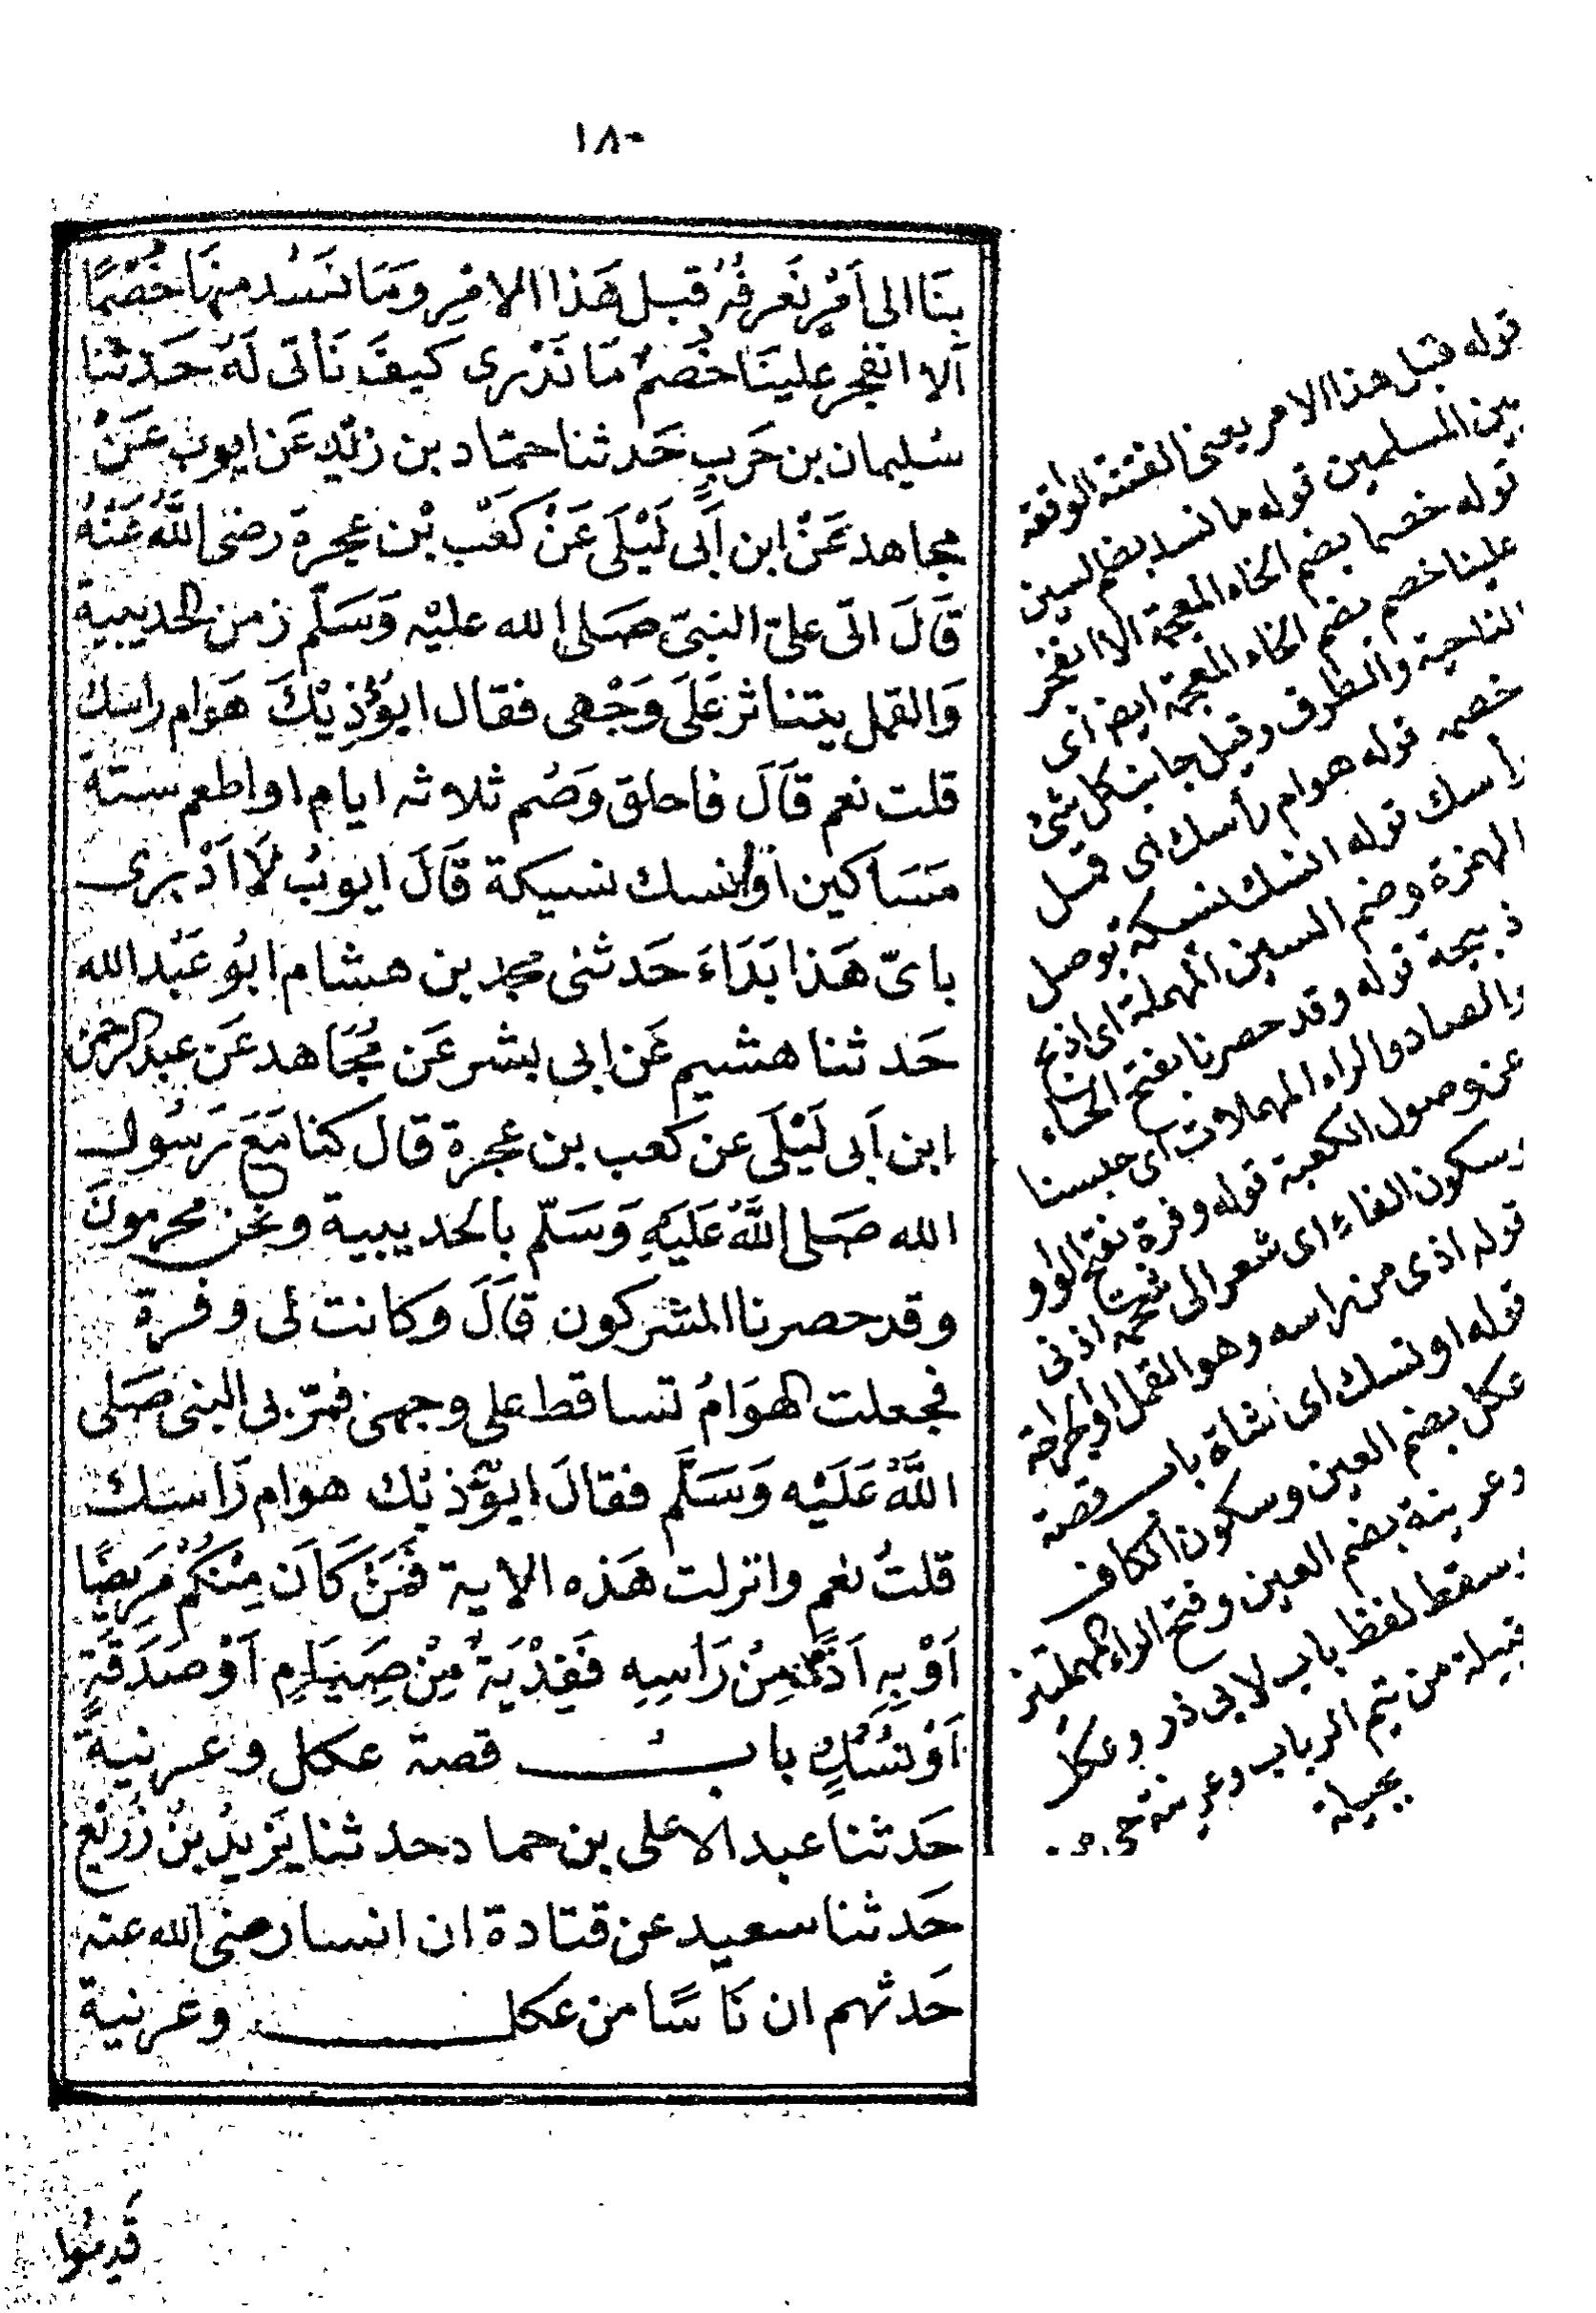 ١٨٠
بِنَا الى اَمْرٍ نَعرفُهُ قبل هَذا الامْرِ وَمَا نَسُد منهَا خُصْمًا
اَلا انفجر علينَا خُصمٌ مَا نَدْرى كيفَ نَاتى لَهُ حَدثنا
سُليمان بن حَربٍ حَدثنا حمّاد بن زيْدٍ عَن ايوبَ عَنْ
مجاهد عَنْ ابن اَبى لَيْلَى عَنْ كعْب بْن عجرة رضى اللّٰهُ عَنْهُ
قَالَ اتى علىّ النبىّ صَلى الله عليْه وَسَلّم زمن الحديبية
وَالقمل يتناثر عَلَى وَجْهى فقال ايؤْذِيْكَ هَوام راسك
قلت نعم قَالَ فاحلق وَصُم ثلاثه ايام او اطعم ستة
مَسَاكين اَو انسك نسيكة قَالَ ايوبُ لَا اَدْرى
باىّ هَذا بَدَاءَ حَدثنى محمد بن هشام ابُو عَبْد الله
حَدثنا هشيم عَن ابى بشر عَن مُجَاهد عَن عبد الرحمن
ابن اَبى لَيْلَى عن كعب بن عجرة قال كنا مَعَ رَسُول
الله صَلى اللّٰهُ عَلَيْهِ وَسَلّم بالحديبية ونحن محرمونَ
وقد حصرنا المشركون قَالَ وكانت لى وفرة
فجعلت الهوَامُ تساقط على وجهى فمرّ بى النبى صَلى
اللّٰهُ عَلَيْه وَسَلَّم فقالَ ايؤْذيك هوام رَاسك
قلتُ نعم وانزلت هَذه الاية فَمَنْ كَانَ مِنْكُمْ مَرِيضًا
اَوْ بِهِ اَذًى مِنْ رَاْسِهِ فَفِدْيَةٌ مِنْ صِيَامٍ اَوْ صَدَقَةٍ
اَوْ نُسُكٍ بابُ قصة عكل وعرنيةً
حَدثنا عبد الاعلى بن حماد حدثنا يَزيدُ بنُ زُرَيْع
حَدثنا سعيد عن قتادة ان انسا رضى الله عنه
حَدثهم ان نَاسًا من عكل وعرنية
قدِمُوا
قوله قبل هذا الامر يعنى الفتنة الواقعة
بين المسلمين قوله ما نسد بضم السين
قوله خصما بضم الخاء المعجمة الا انفجر
علينا خصم بضم الخاء المعجمة ايضا اى
الناحية والطرف وقيل جانب كل شئ
خصمه قوله هوام رأسك اى قمل
راسك قوله انسك نسيكة بوصل
الهمزة وضم السين المهملة اى اذبح
ذبيحة قوله وقد حصرنا بفتح الحاء
والصاد والراء المهملات اى حبسنا
عن وصول الكعبة قوله وفرة بفتح الواو
وسكون الفاء اى شعر الى شحمة اذنى
قوله اذى من راسه وهو القمل او الجراحة
قوله او نسك اى شاة باب قصة
عكل بضم العين وسكون الكاف
وعرينة بضم العين وفتح الراء المهملتين
وسقط لفظ باب لابى ذر وعكل
قبيلة من تيم الرباب وعرينة حى من
بجيلة